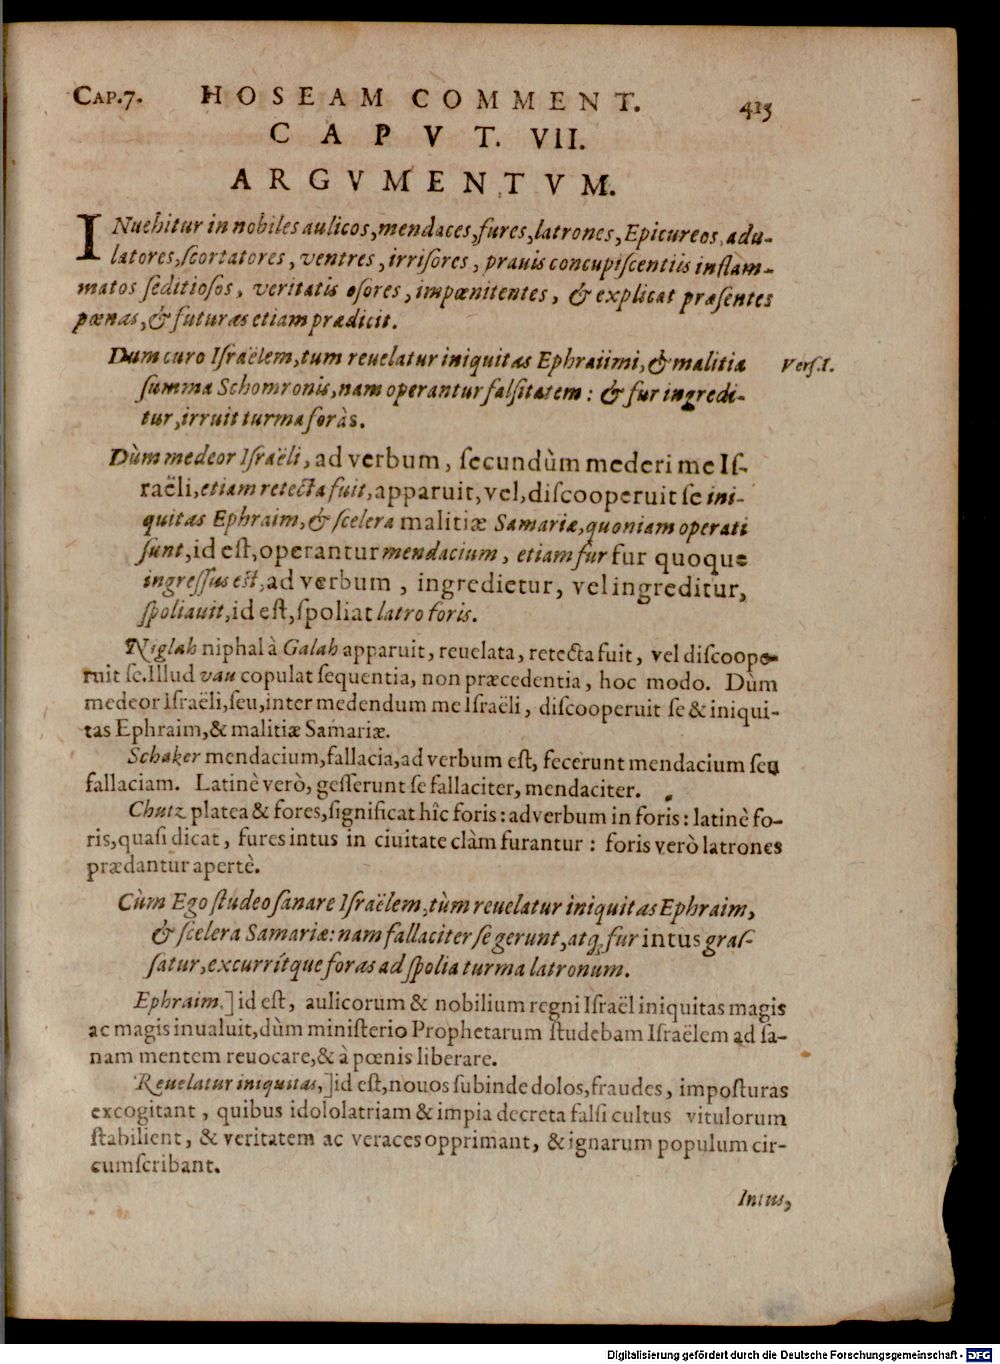 CAP.7. HOSEAM COMMENT. 413
CAPVT. VII.
ARGVMENTVM.
INuehitur in nobiles aulicos, mendaces, fures, latrones, Epicureos, adu-
latores, scortatores, ventres, irrisores, prauis concupiscentiis inflam-
matos seditiosos, veritatis osores, impœnitentes, & explicat præsentes
pœnas, & futuras etiam prædicit.
Dum curo Israëlem, tum reuelatur iniquitas Ephraiimi, & malitia Vers.1.
summa Schomronis, nam operantur falsitatem: & fur ingredi-
tur, irruit turma foràs.
Dùm medeor Israëli, ad verbum, secundùm mederi me Is-
raëli, etiam retecta fuit, apparuit, vel, discooperuit se ini-
quitas Ephraim, & scelera malitiæ Samariæ, quoniam operati
sunt, id est, operantur mendacium, etiam fur fur quoque
ingressus est, ad verbum, ingredietur, vel ingreditur,
spoliauit, id est, spoliat latro foris.
Niglah niphal à Galah apparuit, reuelata, retecta fuit, vel discoope-
ruit se. Illud vau copulat sequentia, non præcedentia, hoc modo. Dùm
medeor Israëli, seu, inter medendum me Israëli, discooperuit se & iniqui-
tas Ephraim, & malitiæ Samariæ.
Schaker mendacium, fallacia, ad verbum est, fecerunt mendacium seu
fallaciam. Latinè verò, gesserunt se fallaciter, mendaciter.
Chutz platea & fores, significat hîc foris: ad verbum in foris: latinè fo-
ris, quasi dicat, fures intus in ciuitate clàm furantur: foris verò latrones
prædantur apertè.
Cùm Ego studeo sanare Israëlem, tùm reuelatur iniquitas Ephraim,
& scelera Samariæ: nam fallaciter se gerunt, atq; fur intus gras-
satur, excurrítque foras ad spolia turma latronum.
Ephraim,] id est, aulicorum & nobilium regni Israël iniquitas magis
ac magis inualuit, dùm ministerio Prophetarum studebam Israëlem ad sa-
nam mentem reuocare, & à pœnis liberare.
Reuelatur iniquitas,] id est, nouos subinde dolos, fraudes, imposturas
excogitant, quibus idololatriam & impia decreta falsi cultus vitulorum
stabilient, & veritatem ac veraces opprimant, & ignarum populum cir-
cumscribant.
Intus,
Digitalisierung gefördert durch die Deutsche Forschungsgemeinschaft - DFG